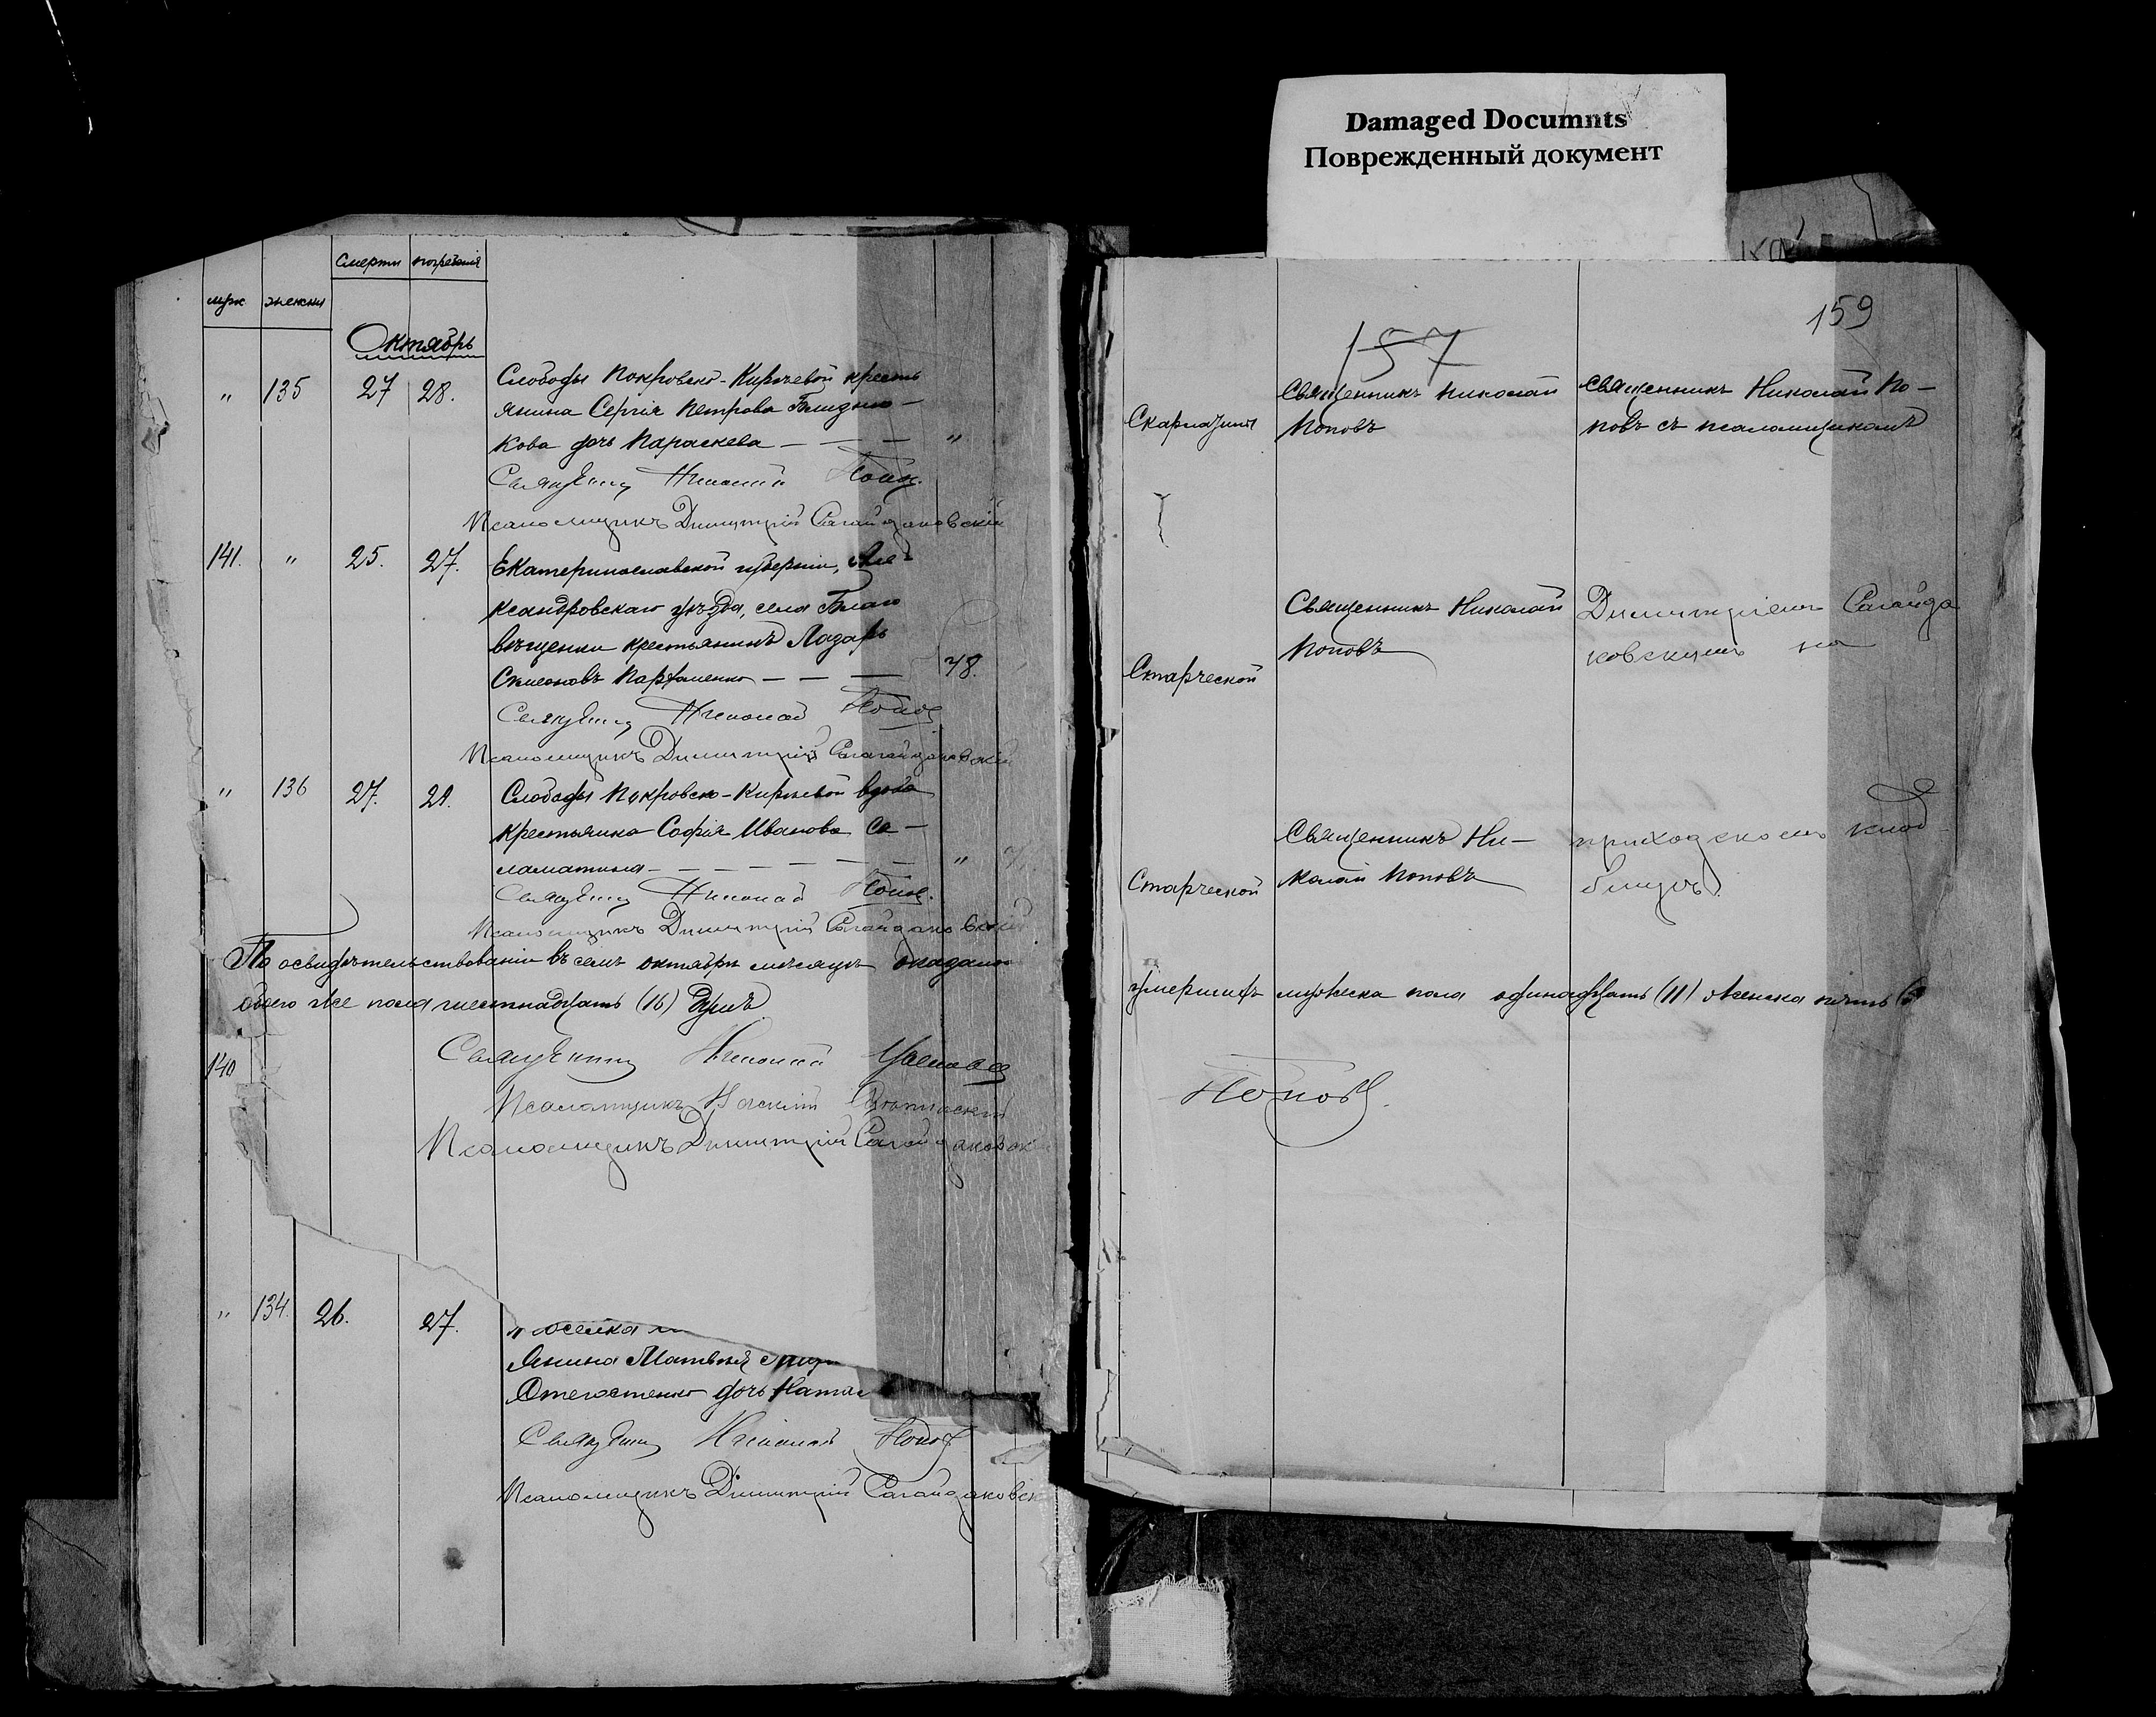 Damaged Documnts
Поврежденный документ
Смерти погребенія
муж женскы
Октябрь
" 135 27 28. Слободы Покровско-Кирѣевой кресть
янина Сергія Петрова
кова дочь Параскева — — — "
Священникъ Николай Поповъ
Псаломщикъ Димитрій Сагайдаковскій
141. " 25. 27. Екатеринославской губерніи, Але-
ксандровскаго уѣзда, села Благо
вѣщенки крестьянинъ Лазарь
Симеоновъ Парфоменко — — — 78.
Священникъ Николай Поповъ
Псаломщикъ Димитрій Сагайдаковскій
" 136 27. 29. Слободы Покровско-Кирѣевой вдова
крестьянина Софія Иванова Са-
ламатина — — — — — "
Священникъ Николай Поповъ.
Псаломщикъ Димитрій Сагайдаковскій
По освидѣтельствованіи въ семъ октябрѣ мѣсяцѣ оказалось
обоего же пола шестнадцать (16) душъ
140
Священникъ Николай
Псаломщикъ
Псаломщикъ Димитрій Сагайдаковскій
" 134. 26. 27. поселка
янина Матвѣя
дочь Натал
Священникъ Николай Поповъ
Псаломщикъ Димитрій Сагайдаковск
159
157
Скарлатина Священникъ Николай Поповъ
Священникъ Николай По-
повъ съ псаломщикомъ
Старческой Священникъ Николай Поповъ
Димитріемъ Сагайда
ковскимъ на
Старческой Священникъ Ни-
колай Поповъ
приходскомъ клад
бищѣ.
умершихъ мужеска пола одинадцать (11) женска пять (5
Поповъ.